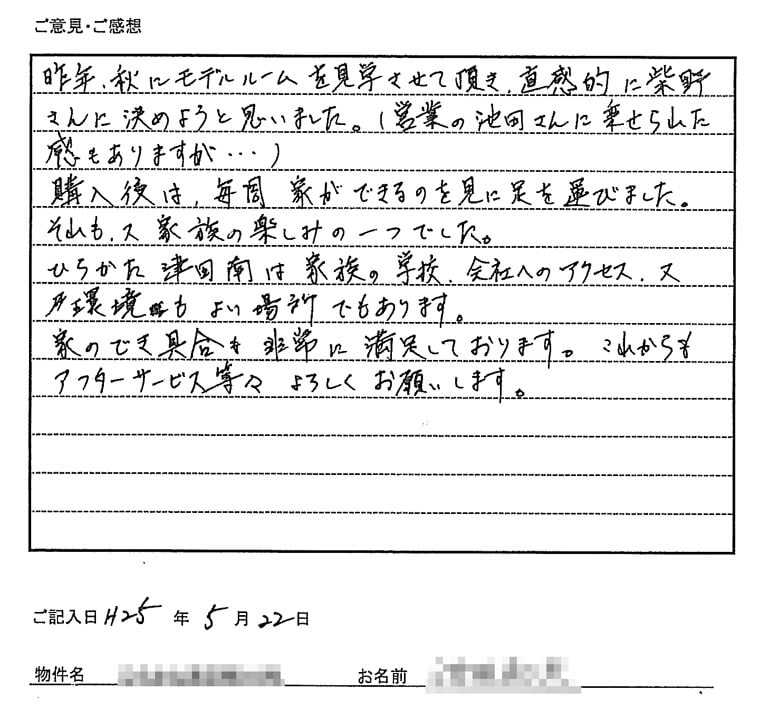 ご意見・ご感想
昨年、秋にモデルルームを見学させて頂き、直感的に柴野
さんに決めようと思いました。(営業の池田さんに乗せられた
感もありますが…)
購入後は、毎週 家ができるのを見に足を運びました。
それも、又 家族の楽しみの一つでした。
ひらかた津田南は家族の学校、会社へのアクセス、又
環境もよい場所でもあります。
家のでき具合も非常に満足しております。これからも
アフターサービス等々よろしくお願いします。
ご記入日 H25 年 5 月 22 日
物件名 お名前